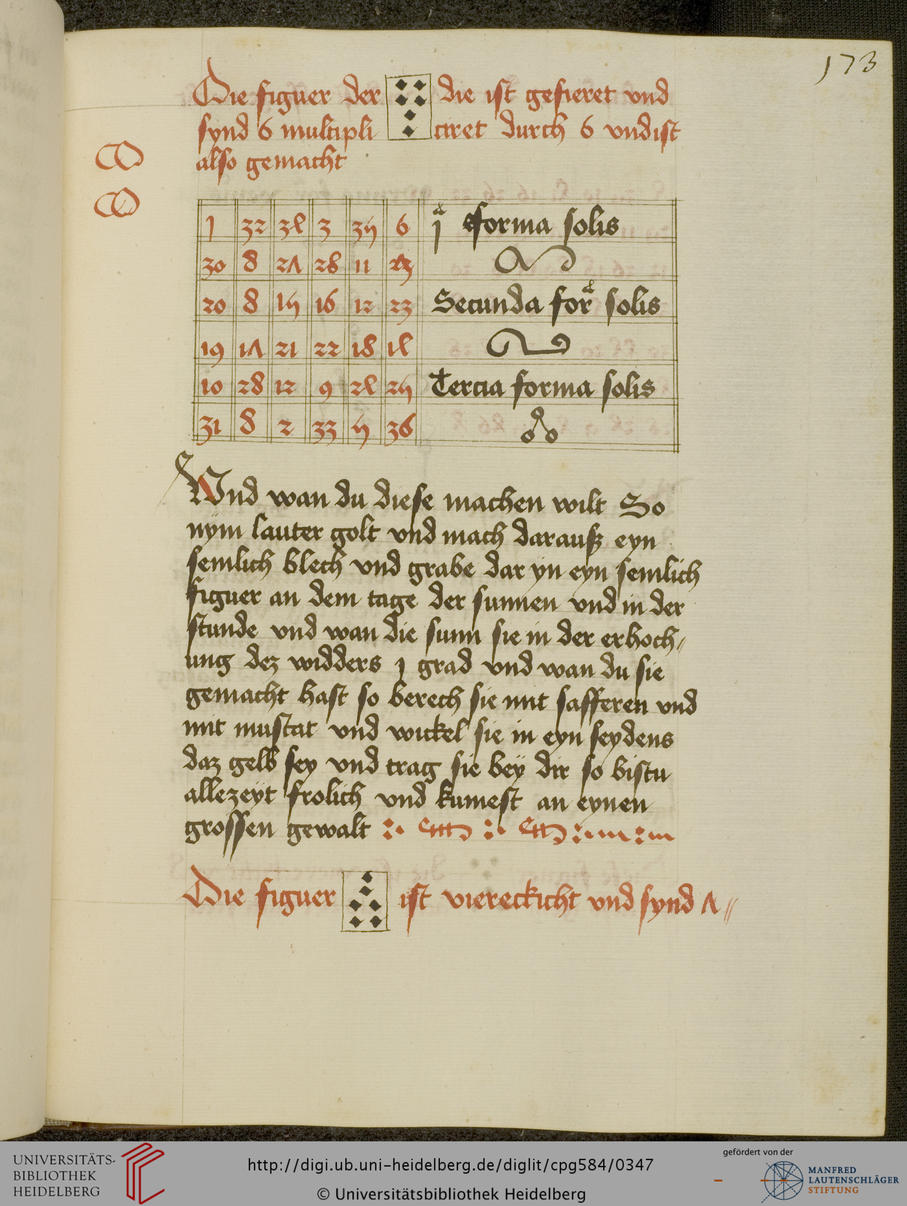 173
Die figuer der die ist gefieret vnd
synd 6 multipli ciret durch 6 vnd ist
also gemacht
1 32 34 3 35 6 forma solis
30 8 27 28 11
20 8 15 16 12 23 Secunda for solis
19 17 21 22 18 14
10 28 12 9 24 25 Tercia forma solis
31 8 2 33 5 36
Vnd wan du diese machen wilt So
nym lauter golt vnd mach darausz eyn
semlich blech vnd grabe dar yn eyn semlich
figuer an dem tage der sunnen vnd in der
stunde vnd wan die sunn sie in der erhoch//
ung dez widders 1 grad vnd wan du sie
gemacht hast so berech sie mit safferen vnd
mit muscat vnd wickel sie in eyn seydens
daz gelb sey vnd trag sie bey dir so bistu
allezeyt frolich vnd kumest an eynen
grossen gewalt
Die figuer ist viereckicht vnd synd 7 //
UNIVERSITÄTS-
BIBLIOTHEK
HEIDELBERG
http://digi.ub.uni-heidelberg.de/diglit/cpg584/0347
© Universitätsbibliothek Heidelberg
gefördert von der
MANFRED
LAUTENSCHLÄGER
STIFTUNG